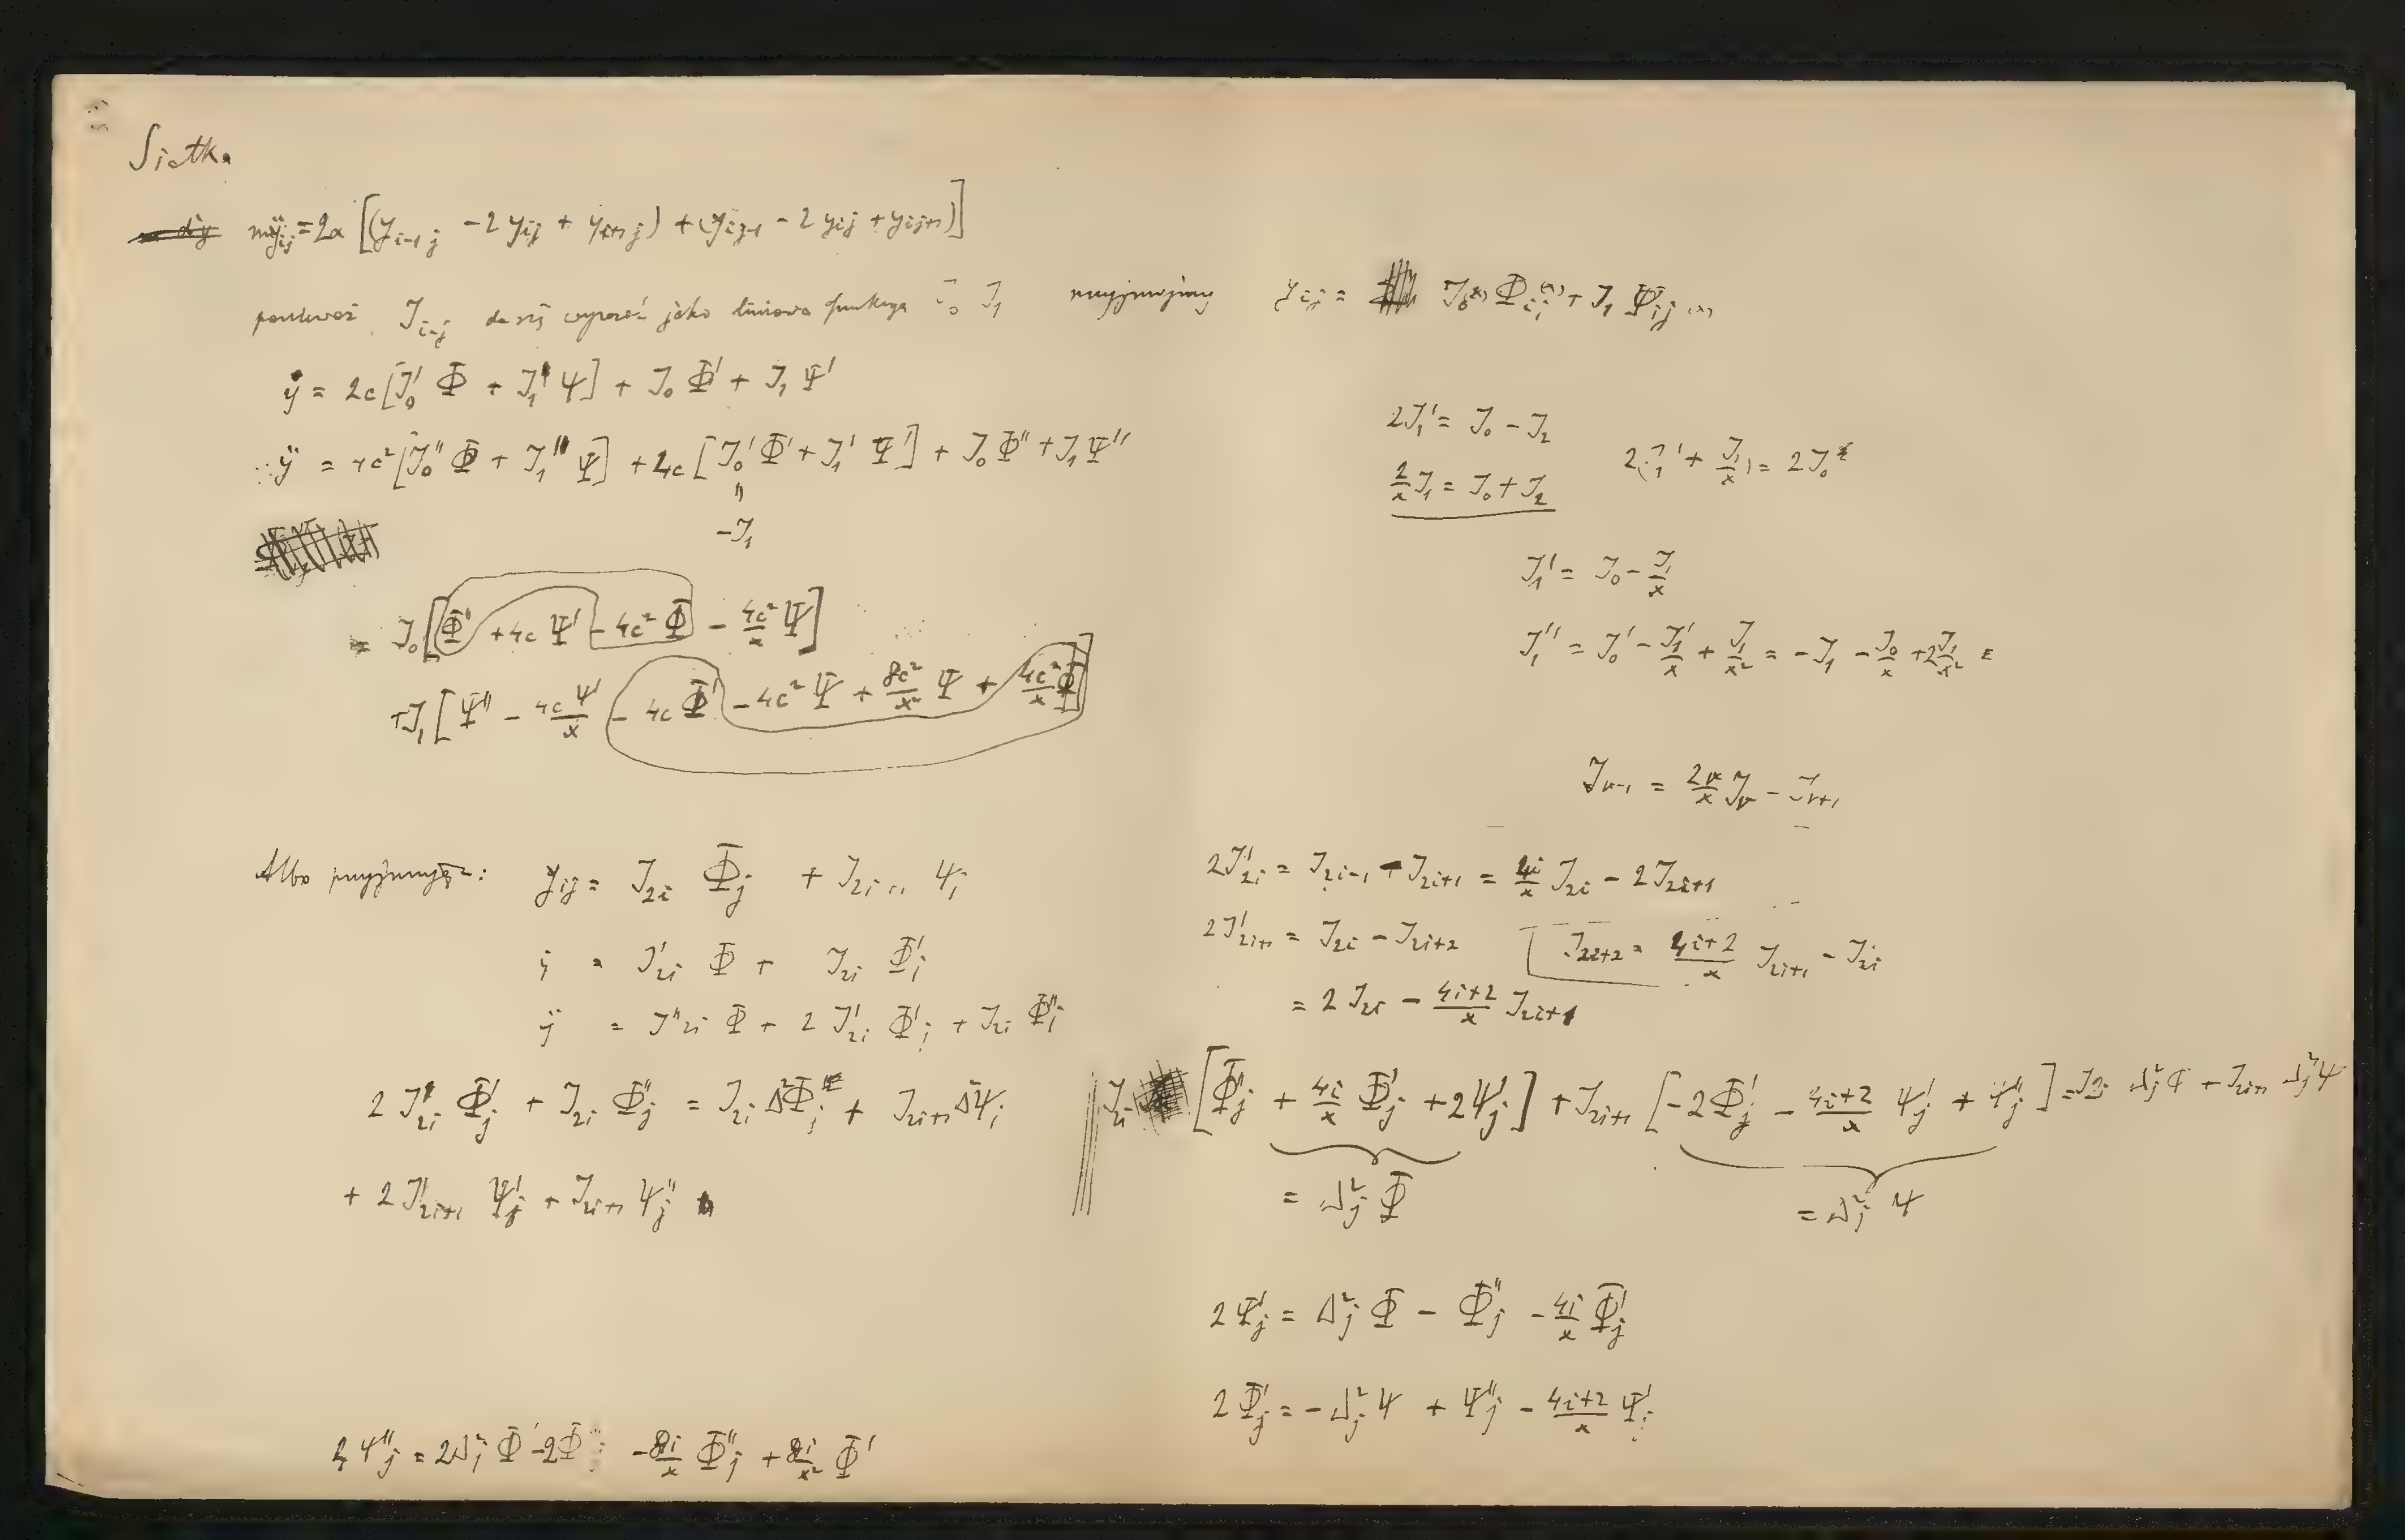 Siatka
mÿ_ij = 2α [(y_i-1 j - 2 y_ij + y_i+1 j) + (y_ij-1 - 2 y_ij + y_ij+1)]
ponieważ J_i-j da się wyrazić jako liniowa funkcya J_0 J_1 przyjmujemy y_ij = J_0(x) Φ_ij(x) + J_1 Ψ_ij(x)
ẏ = 2c [J_0' Φ + J_1' Ψ] + J_0 Φ' + J_1 Ψ'
ÿ = 4c² [J_0'' Φ + J_1'' Ψ] + 4c [J_0' Φ' + J_1' Ψ'] + J_0 Φ'' + J_1 Ψ''
"
-J_1
= J_0 [Φ'' + 4c Ψ' - 4c² Φ - 4c²/x Ψ]
+ J_1 [Ψ'' - 4c Ψ'/x - 4c Φ' - 4c² Ψ + 8c²/x² Ψ + 4c²/x Φ]
2J_1' = J_0 - J_2
2/x J_1 = J_0 + J_2
2(J_1' + J_1/x) = 2J_0
J_1' = J_0 - J_1/x
J_1'' = J_0' - J_1'/x + J_1/x² = -J_1 - J_0/x + 2J_1/x² =
J_ν-1 = 2ν/x J_ν - J_ν+1
Albo
y_ij = J_2i Φ_j + J_2i+1 Ψ_j
ẏ = J'_2i Φ + J_2i Φ'_j
ÿ = J''_2i Φ + 2 J'_2i Φ'_j + J_2i Φ''_j
2 J'_2i Φ'_j + J_2i Φ''_j = J_2i Δ²Φ_j + J_2i+1 Δ²Ψ_j
+ 2 J'_2i+1 Ψ'_j + J_2i+1 Ψ''_j
2J'_2i = J_2i-1 - J_2i+1 = 4i/x J_2i - 2J_2i+1
2J'_2i+1 = J_2i - J_2i+2
J_2i+2 = 4i+2/x J_2i+1 - J_2i
= 2 J_2i - 4i+2/x J_2i+1
J_2i [Φ''_j + 4i/x Φ'_j + 2Ψ'_j] + J_2i+1 [-2Φ'_j - 4i+2/x Ψ'_j + Ψ''_j] = J_2i Δ²_j Φ + J_2i+1 Δ²_j Ψ
= Δ²_j Φ
= Δ²_j Ψ
2 Ψ'_j = Δ²_j Φ - Φ''_j - 4i/x Φ'_j
2 Φ'_j = - Δ²_j Ψ + Ψ''_j - 4i+2/x Ψ'_j
4 Ψ''_j = 2Δ²_j Φ' - 2Φ'''_j - 8i/x Φ''_j + 8i/x² Φ'